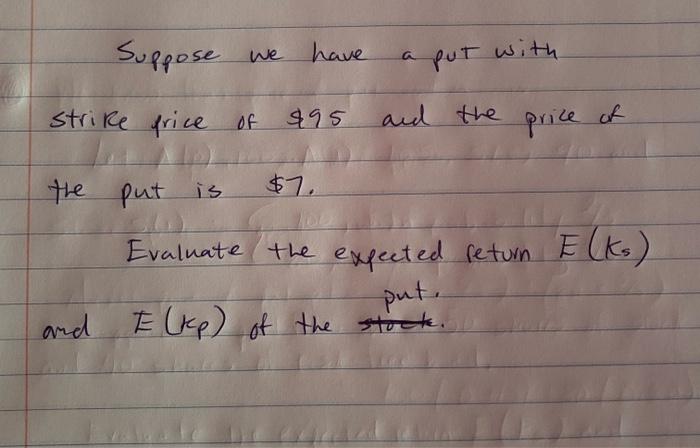 Suppose we have a put with
strike price of $95 and the price of
the put is $7.
Evaluate the expected return E(Ks)
put.
and E(Kp) of the stock.